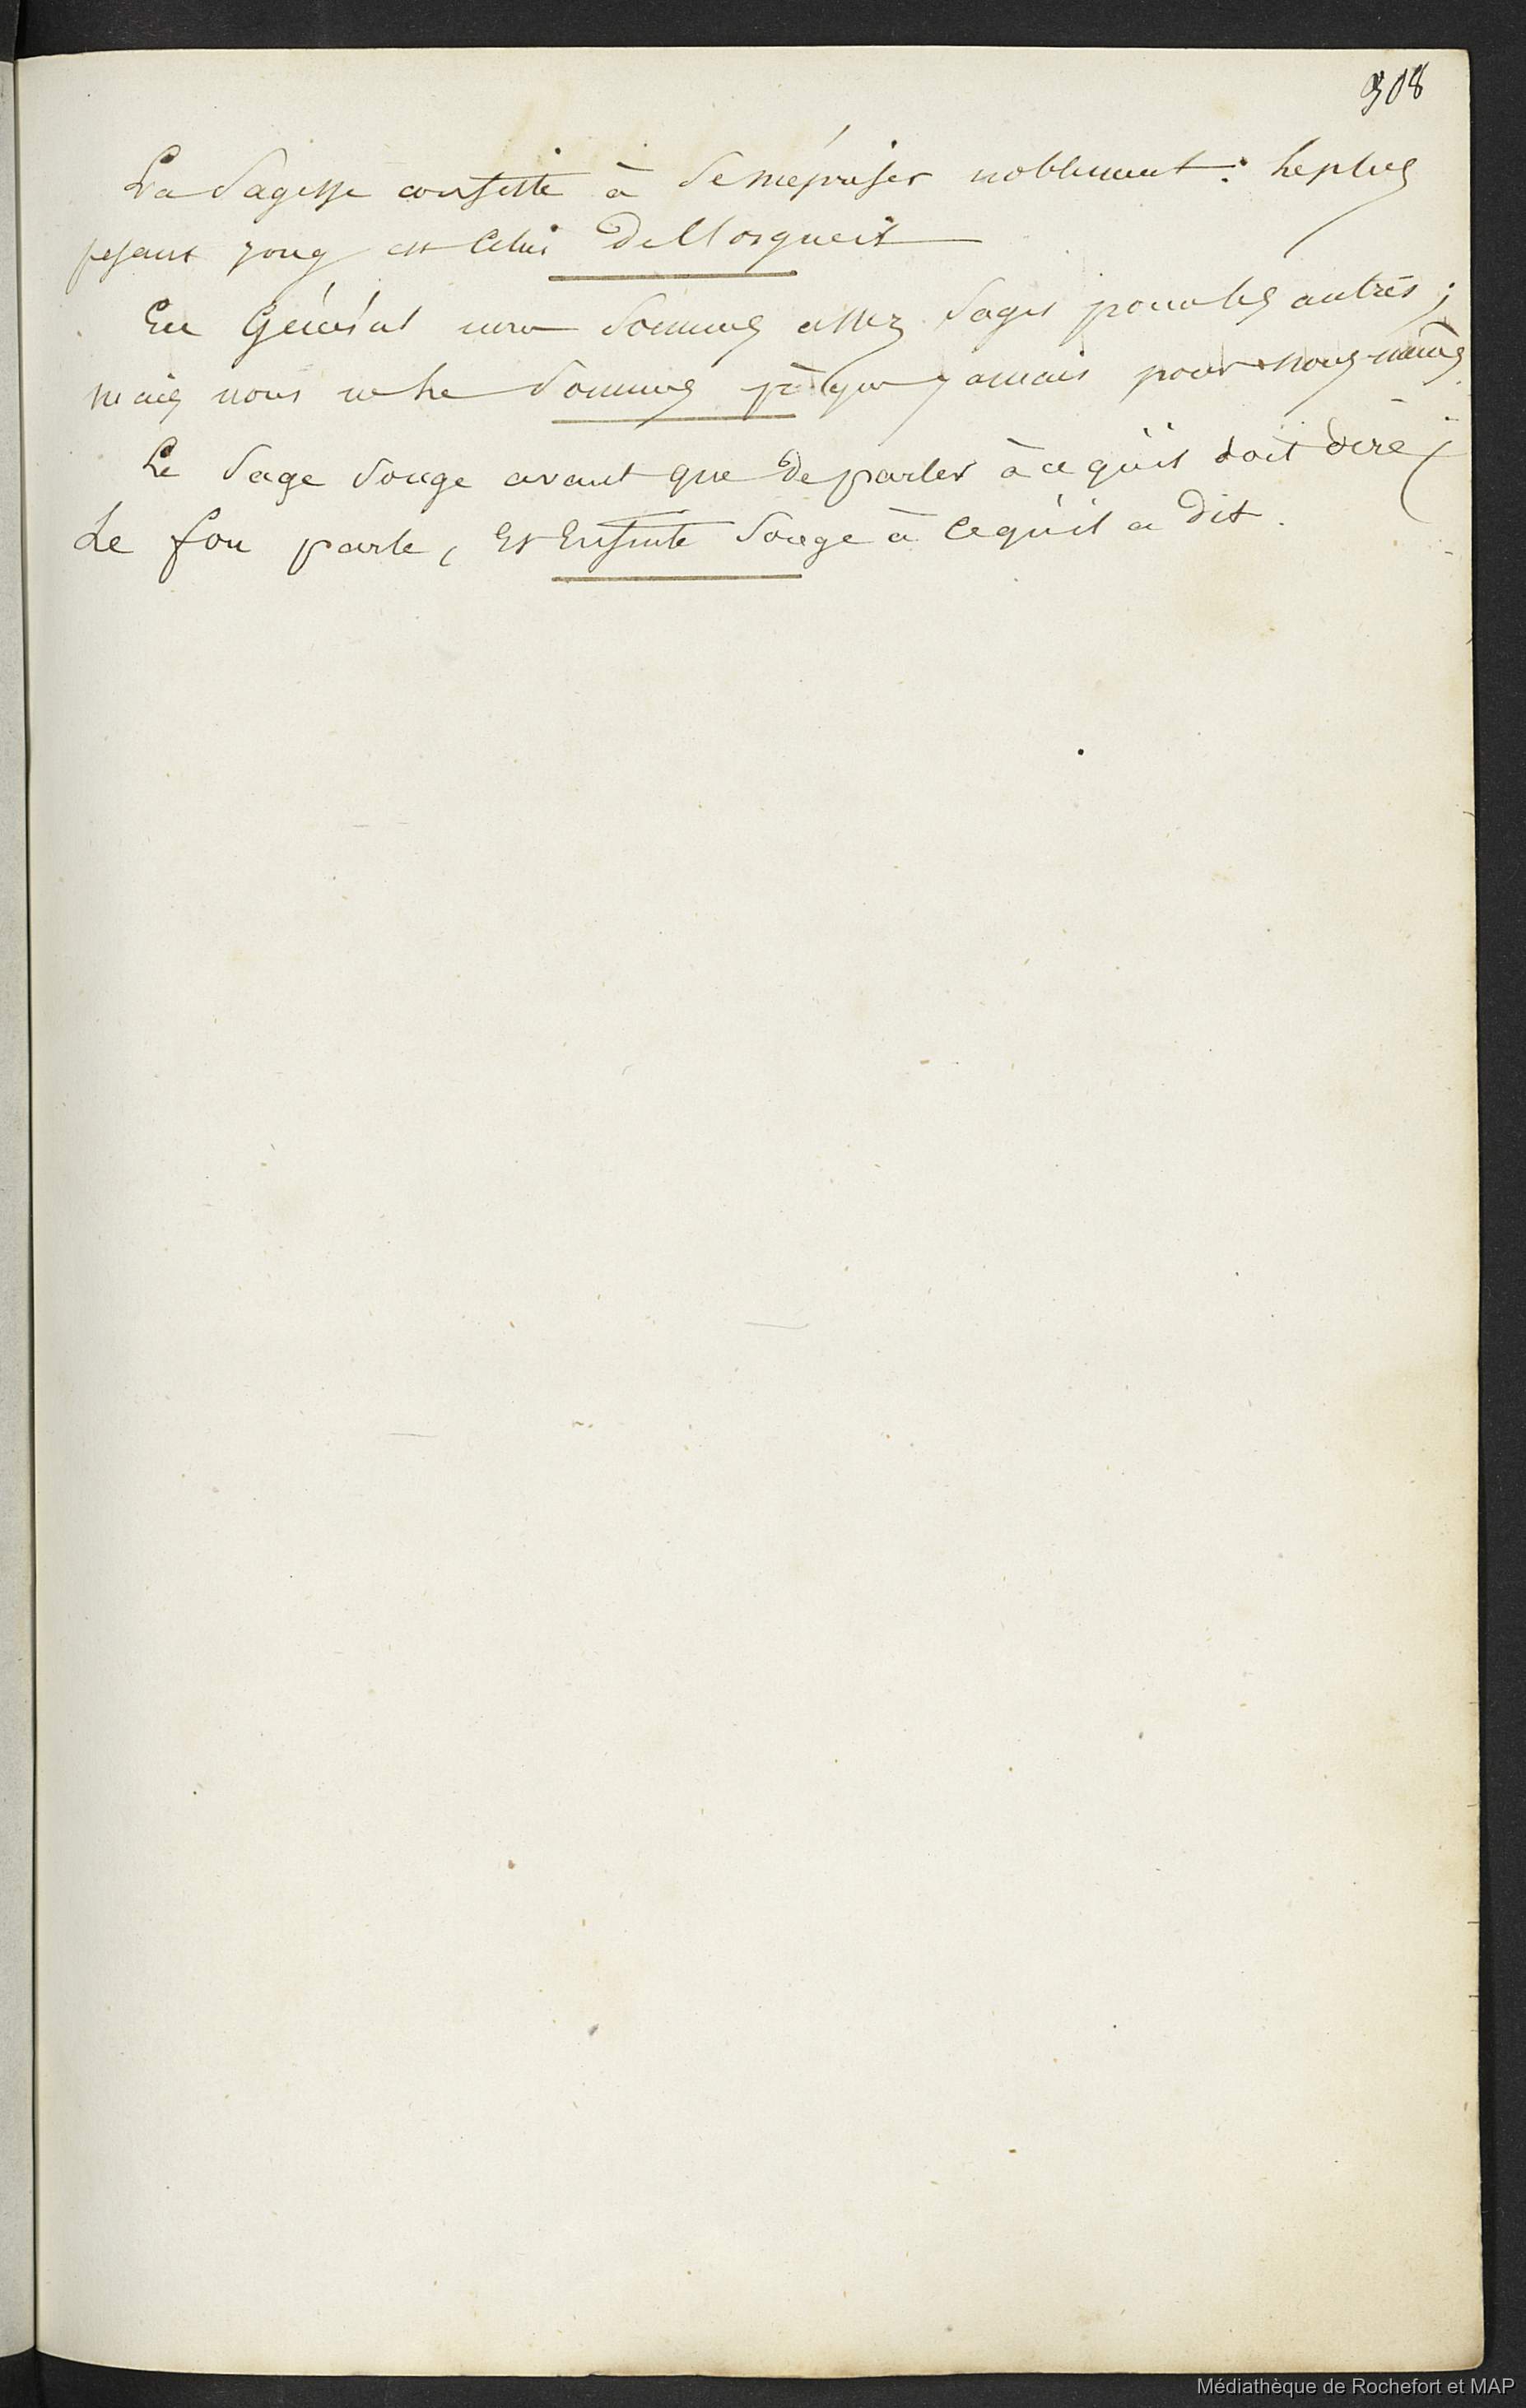 308
La Sagesse consiste à Se mépriser noblement : le plus
pesant joug est Celui De l'orgueil
En Général nous Sommes assez Sages pour les autres ;
mais nous ne le Sommes pr que jamais pour nous mêmes
Le Sage Songe avant que De parler à ce qu'il doit dire ;
Le fou parle, Et Ensuite Songe à ce qu'il a Dit.
Médiathèque de Rochefort et MAP